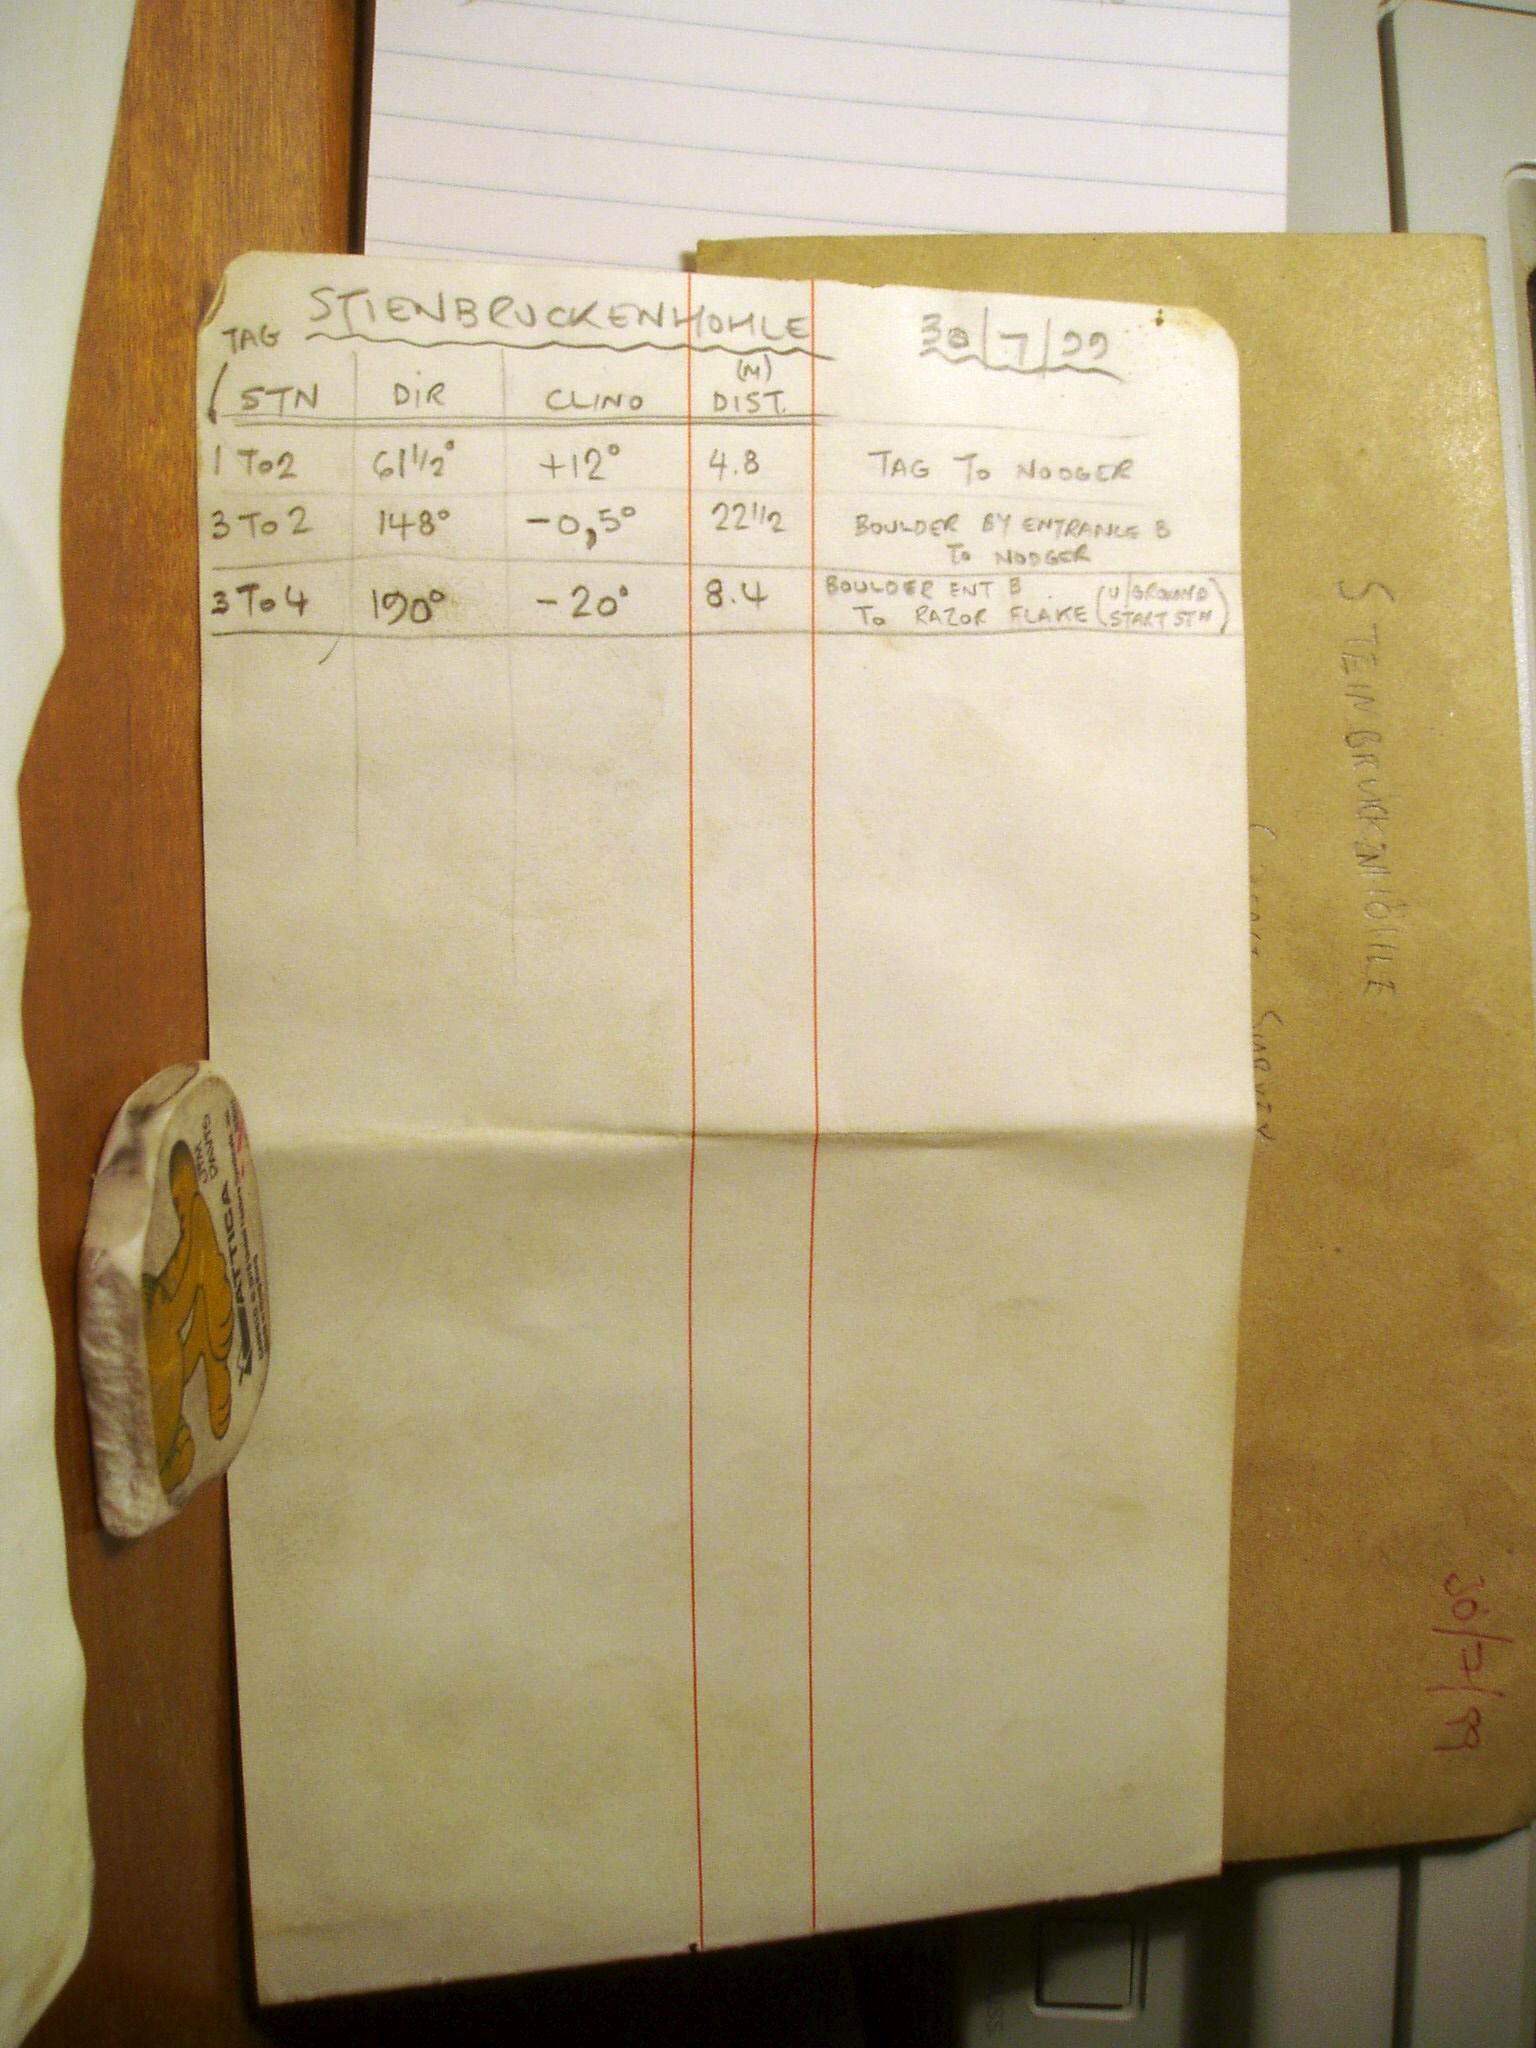 STIENBRUCKENHOHLE 30/7/99
TAG
STN DIR CLINO (M) DIST.
1 To 2 61 1/2° +12° 4.8 TAG To NODGER
3 To 2 148° -0,5° 22 1/2 BOULDER BY ENTRANCE B
To NODGER
3 To 4 190° -20° 8.4 BOULDER ENT B (U/GROUND
To RAZOR FLAKE START STN)
STEINBRUCKENHÖHLE
30/7/99
LYM
DAVIS
ATTICA